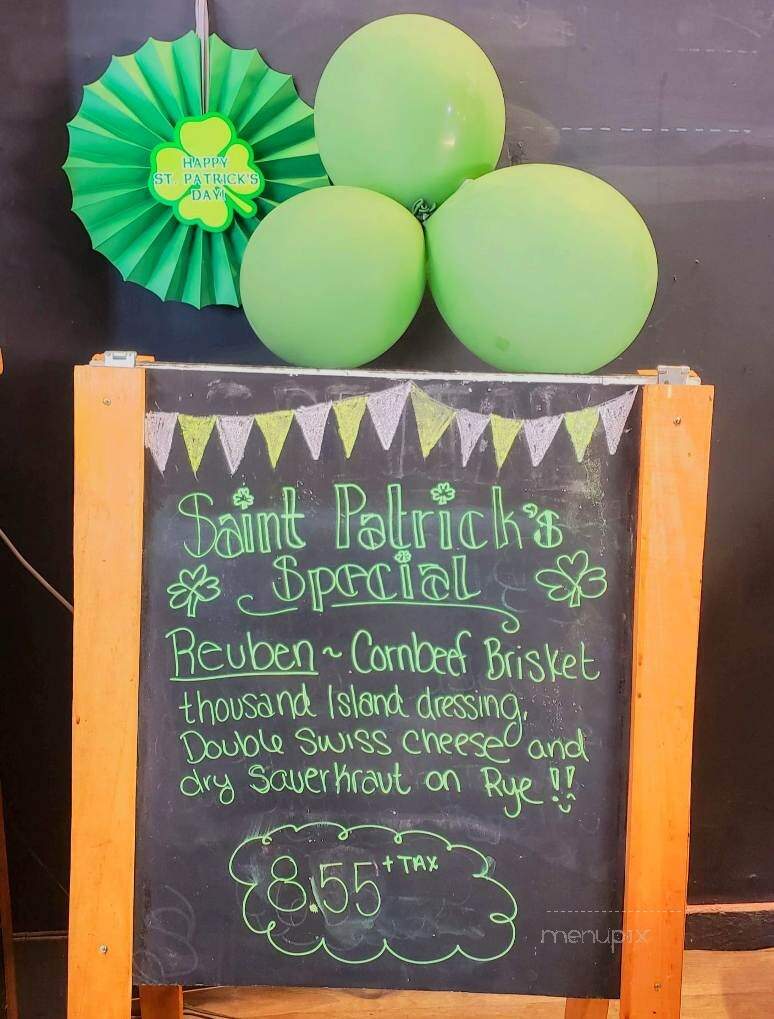 HAPPY
ST. PATRICK'S
DAY!
Saint Patrick's
Special
Reuben ~ Cornbeef Brisket
thousand Island dressing,
Double Swiss cheese and
dry Sauerkraut on Rye !!
8.55 + TAX
menupix